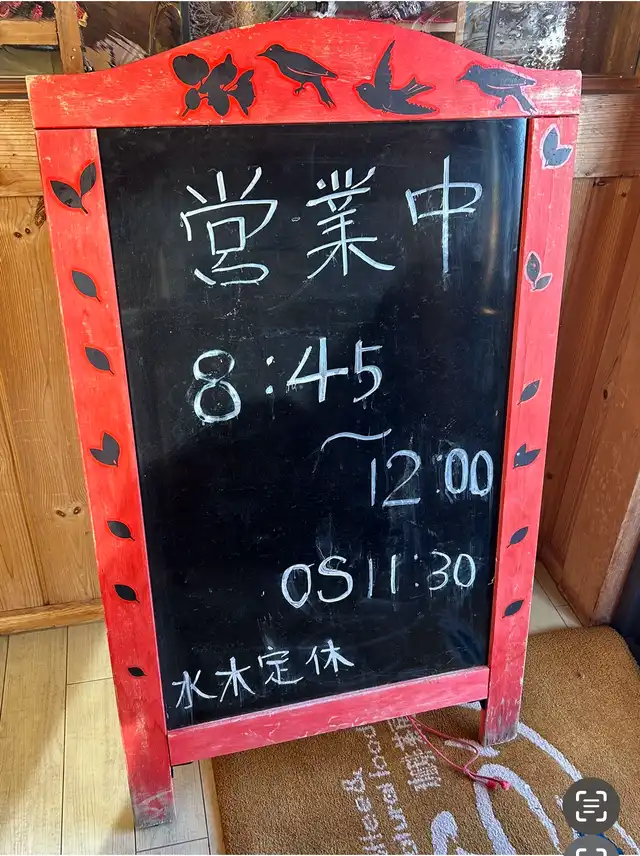 営業中
8:45
〜12:00
OS 11:30
水木定休